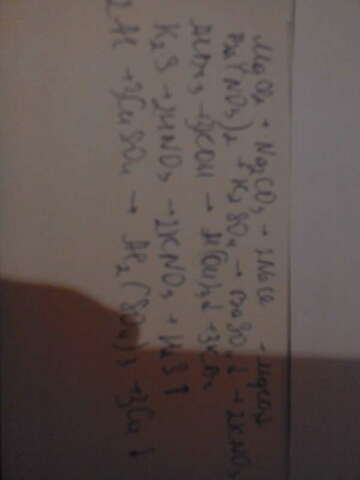 MgCl2 + Na2CO3 → 2NaCl + MgCO3
Ba(NO3)2 + K2SO4 → BaSO4↓ + 2KNO3
AlBr3 + 3KOH → Al(OH)3↓ + 3KBr
K2S + 2HNO3 → 2KNO3 + H2S↑
2Al + 3CuSO4 → Al2(SO4)3 + 3Cu↓